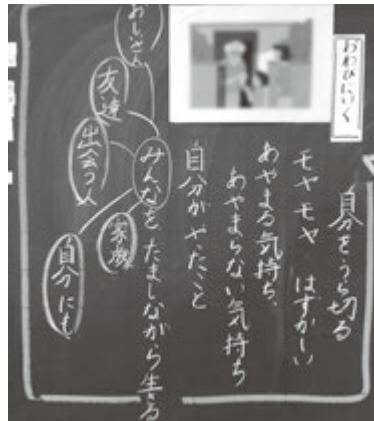 おわびにいく
自分をうら切る
モヤモヤ　はずかしい
あやまる気持ち、
あやまらない気持ち
自分がやったこと
みんなを たましながら生きる
おじいさん
友達
出会う人
家族
自分にも